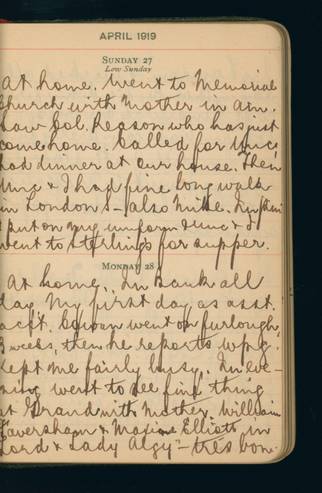 APRIL 1919
SUNDAY 27
Low Sunday
At home. Went to Memorial
Church with Mother in a.m.
Saw Col. Reason who has just
come home. Called for
had dinner at our house. Then
& I had fine long walk
in London S– also Mille.
I put on my uniform & I
went to Sterlings for supper.
MONDAY 28
At home. In Bank all
day. My first day as asst.
acct. went on furlough,
3 weeks, then he reports
Kept me fairly busy. In eve-
ning went to see fine thing
at Grand with Mother. William
Faversham & Maxine Elliott in
Lord & Lady Algy – très bon.